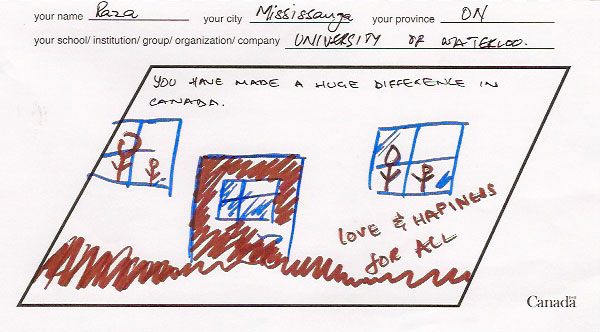 your name Raza your city Mississauga your province ON
your school/ institution/ group/ organization/ company UNIVERSITY OF WATERLOO.
YOU HAVE MADE A HUGE DIFFERENCE IN
CANADA.
LOVE & HAPINESS
FOR ALL
Canada